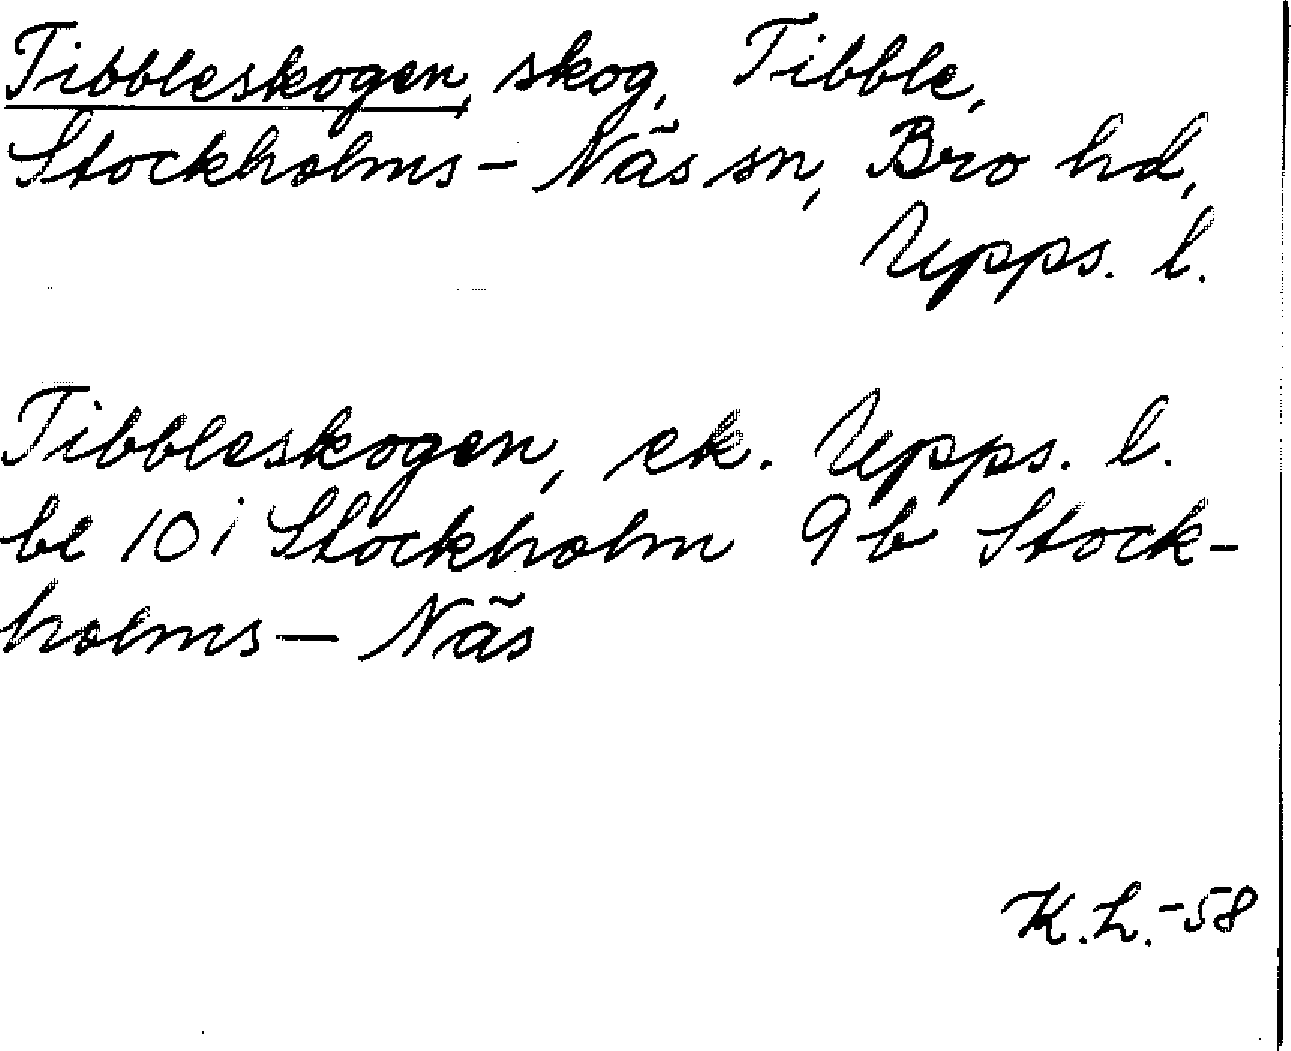 Tibbleskogen, skog, Tibble,
Stockholms-Näs sn, Bro hd,
Upps. l.
Tibbleskogen, ek. Upps. l.
bl 10 i Stockholm 9 b Stock-
holms-Näs
K.L.-58